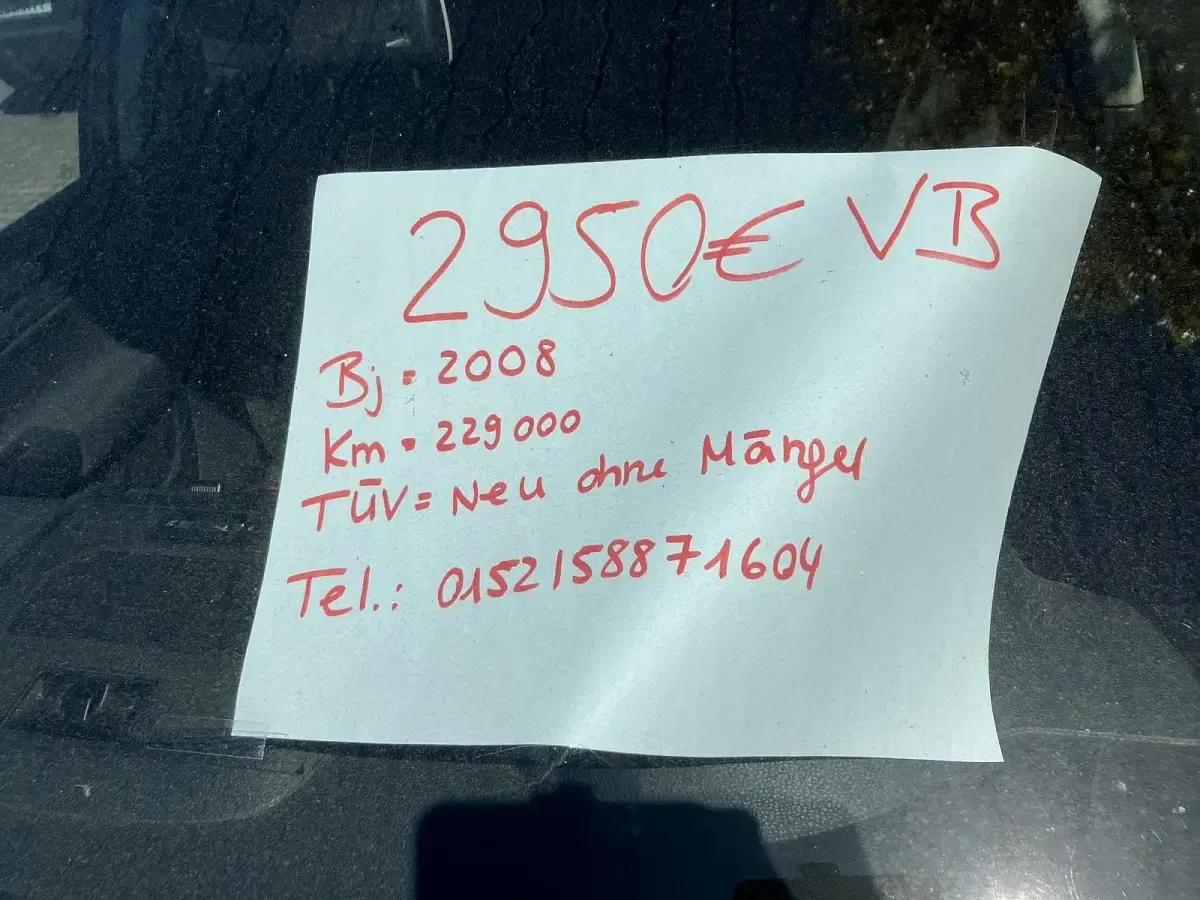 2950€ VB
Bj = 2008
Km = 229000
TÜV = Neu ohne Mängel
Tel.: 0152158871604